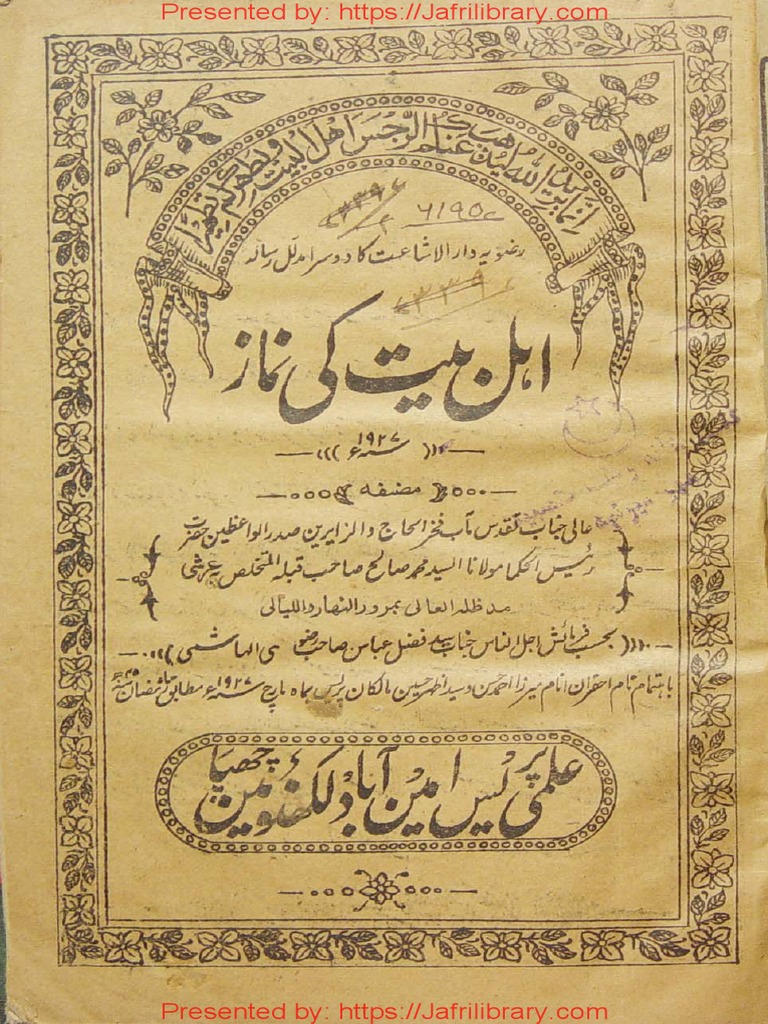 Presented by: https://Jafrilibrary.com
انما یرید اللہ لیذھب عنکم الرجس اھل البیت ویطھرکم تطھیرا
۶۱۹۵۰
رضویہ دار الاشاعت کا دوسرا مدلل رسالہ
اہل بیت کی نماز
سنہ ۱۹۲۷ء
مصنفہ
عالی جناب تقدس مآب فخر الحاج والزایرین صدر الواعظین حضرت
رئیس الحکما مولانا السید محمد صالح صاحب قبلہ المتخلص عرشی
مد ظلہ العالی بمرور النہار واللیالی
بحسب فرمائش اجل الناس جناب سید فضل عباس صاحب رضوی الہاشمی
باہتمام تام احقران انام میرزا احمد حسن و سید اظہر حسین مالکان پریس بماہ مارچ سنہ ۱۹۲۷ء مطابق ماہ رمضان
علمی پریس امین آباد لکھنؤ مین چھپا
Presented by: https://Jafrilibrary.com